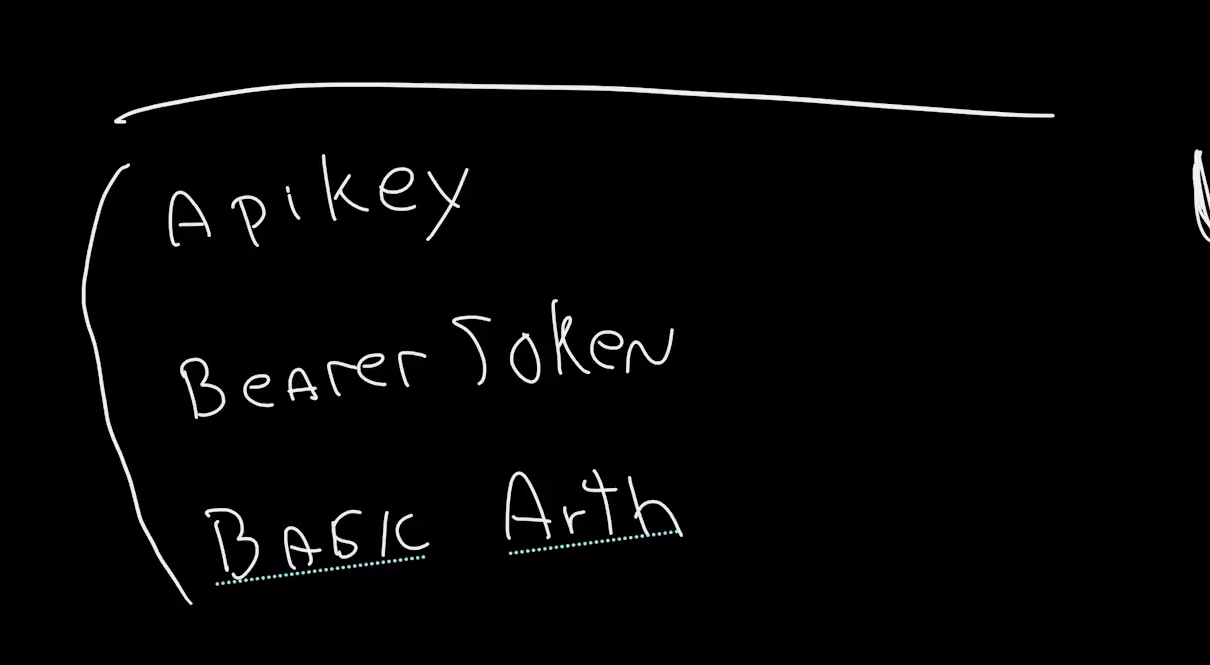 Apikey
Bearer Token
Basic Arth